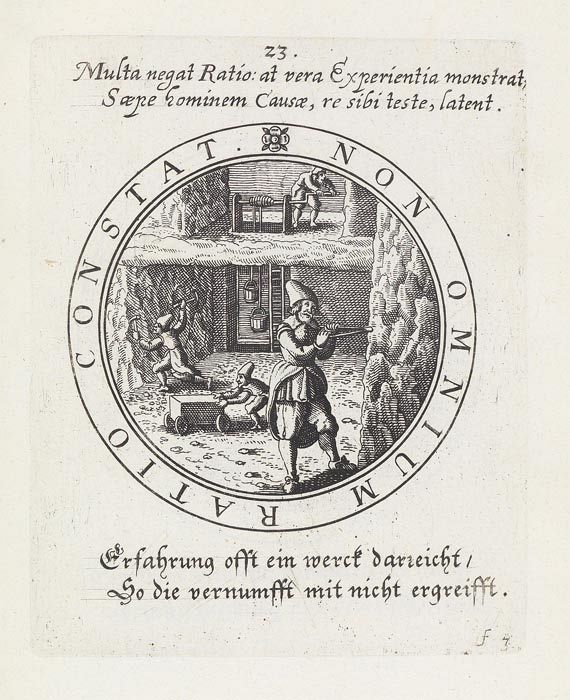 23.
Multa negat Ratio: at vera Experientia monstrat,
Sæpe hominem Causæ, re sibi teste, latent.
NON OMNIUM RATIO CONSTAT.
Erfahrung offt ein werck darreicht /
So die vernumfft mit nicht ergreifft.
f 4